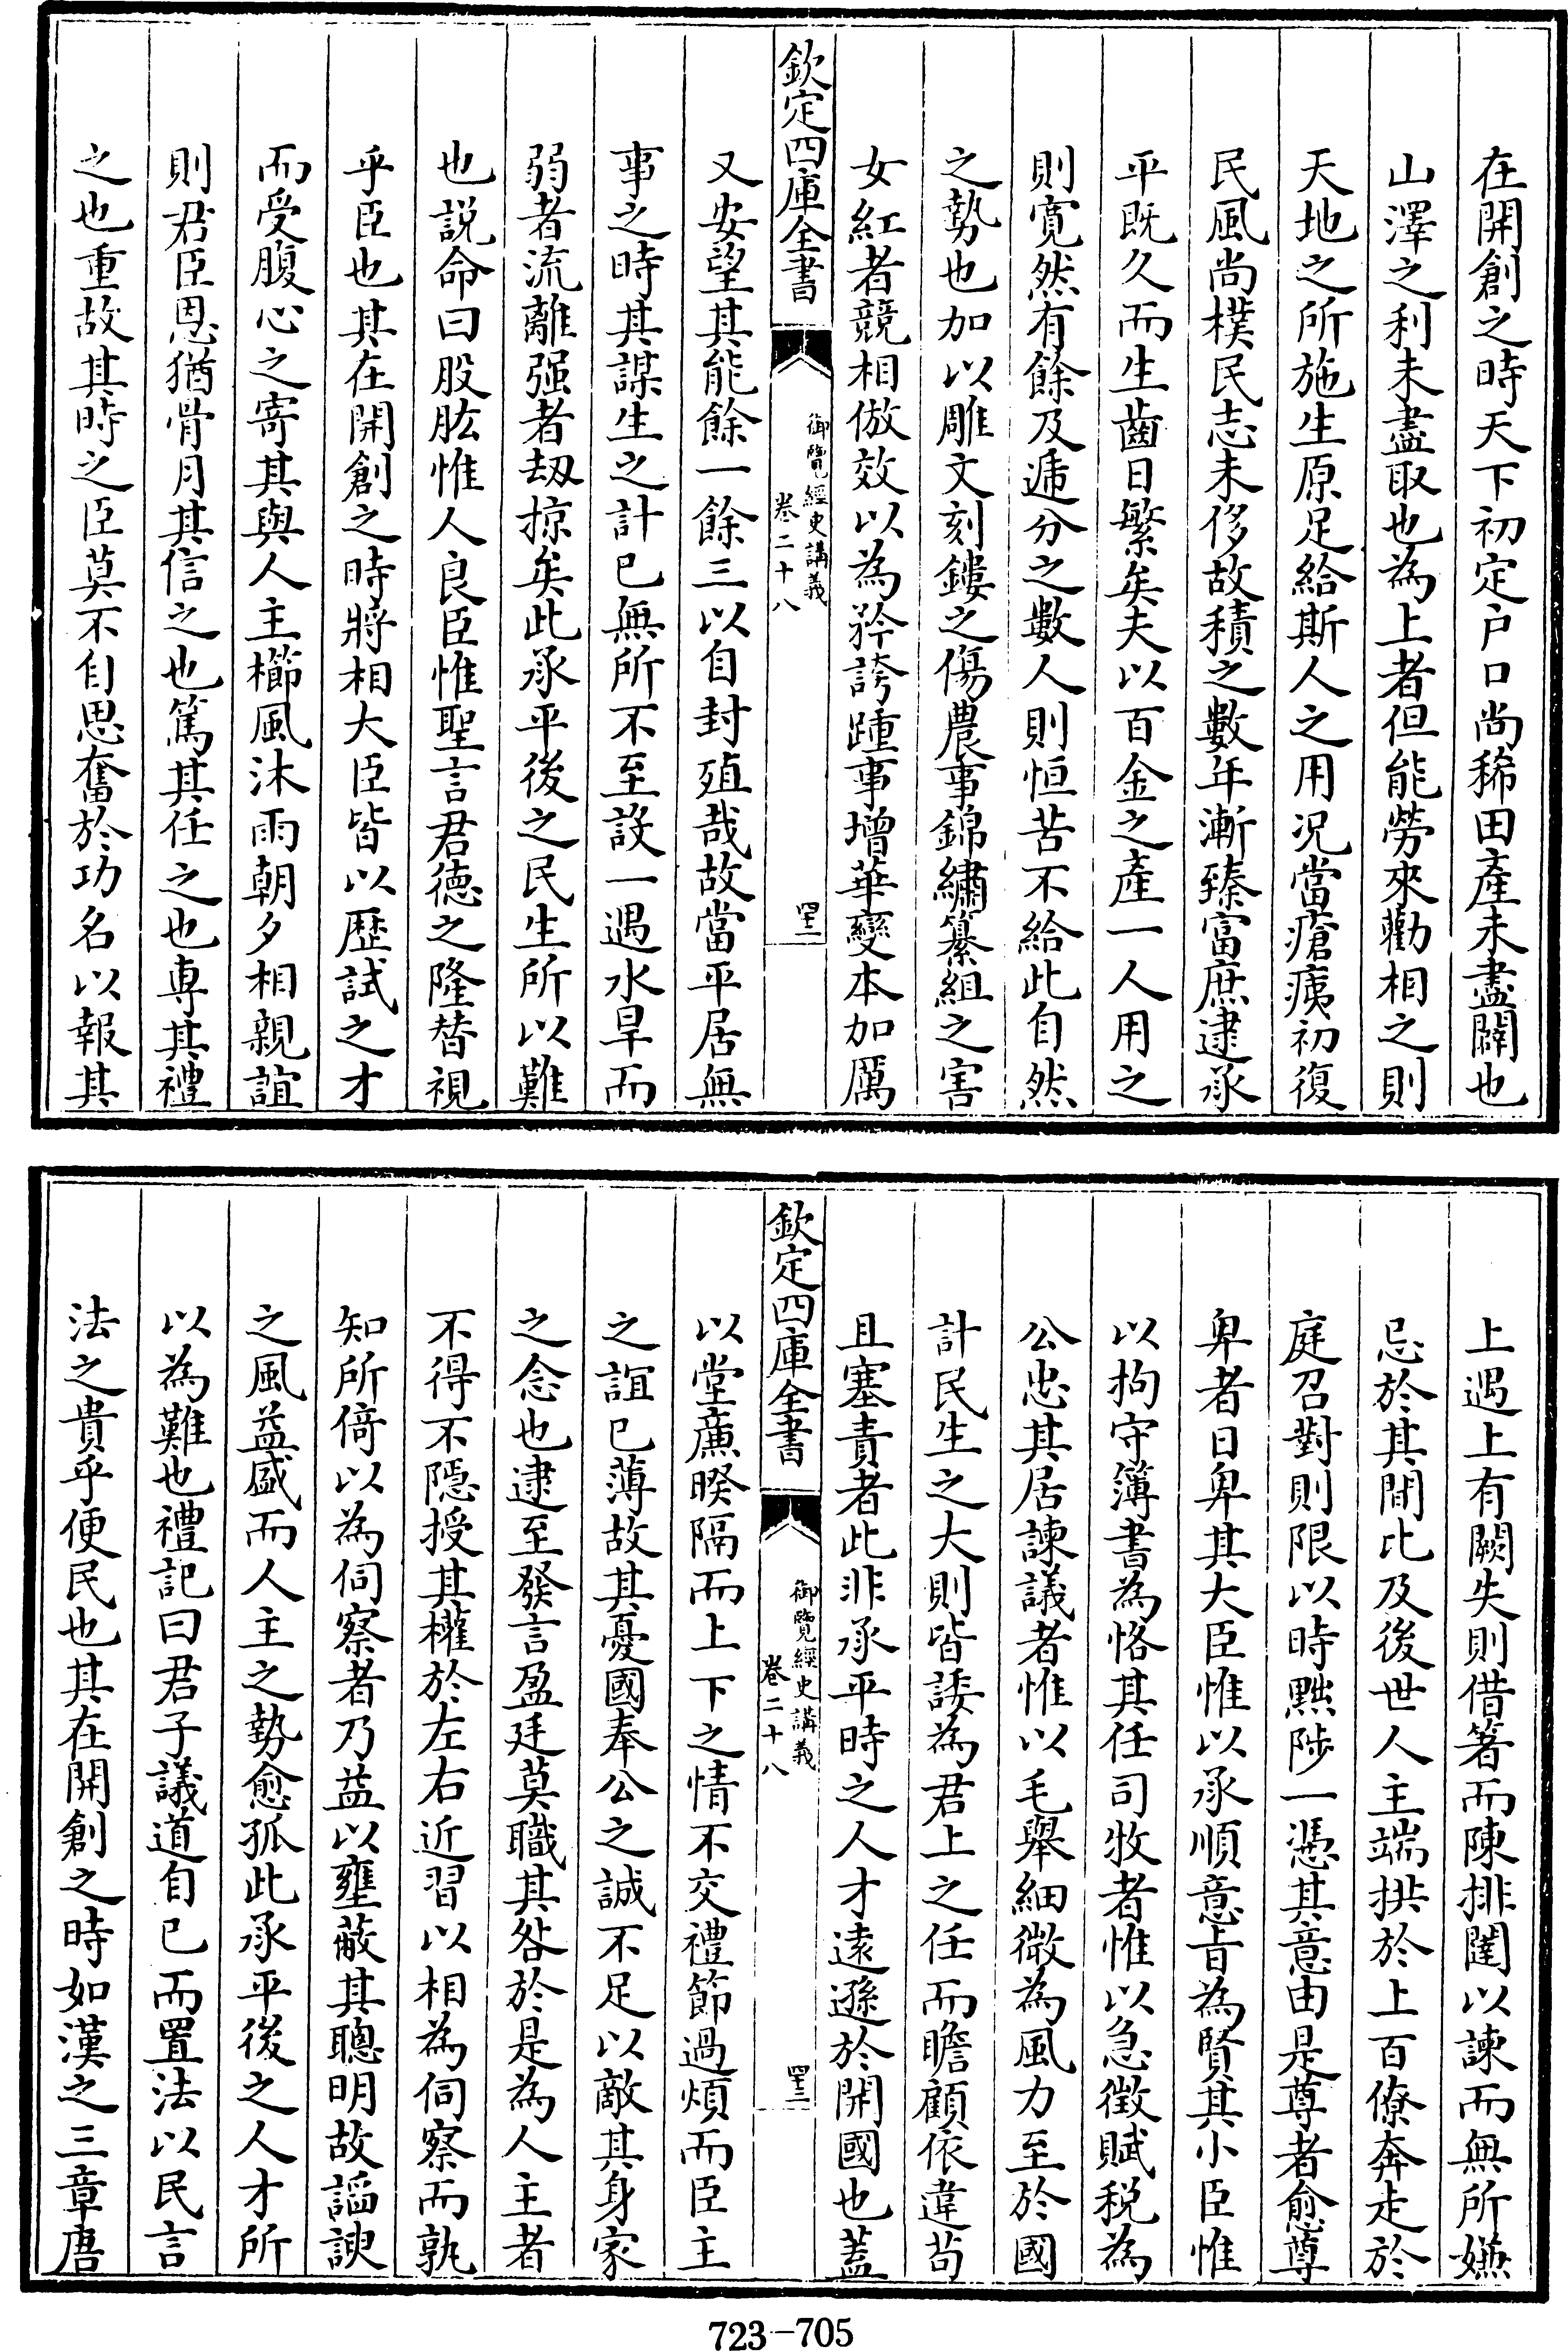 在開創之時天下初定户口尚稀田產未盡闢也
山澤之利未盡取也為上者但能勞來勸相之則
天地之所施生原足給斯人之用况當瘡痍初復
民風尚樸民志未侈故積之數年漸臻富庶逮承
平既久而生齒日繁矣夫以百金之產一人用之
則寛然有餘及遞分之數人則恒苦不給此自然
之勢也加以雕文刻鏤之傷農事錦繡纂組之害
女紅者競相倣效以為矜誇踵事增華變本加厲
欽定四庫全書
御覽經史講義
卷二十八
四十二
又安望其能餘一餘三以自封殖哉故當平居無
事之時其謀生之計已無所不至設一遇水旱而
弱者流離强者刼掠矣此承平後之民生所以難
也説命曰股肱惟人良臣惟聖言君德之隆替視
乎臣也其在開創之時將相大臣皆以歷試之才
而受腹心之寄其與人主櫛風沐雨朝夕相親誼
則君臣恩猶骨月其信之也篤其任之也専其禮
之也重故其時之臣莫不自思奮於功名以報其
上遇上有闕失則借箸而陳排闥以諫而無所嫌
忌於其間比及後世人主端拱於上百僚奔走於
庭召對則限以時黜陟一憑其意由是尊者愈尊
卑者日卑其大臣惟以承順意旨為賢其小臣惟
以拘守簿書為恪其任司牧者惟以急徴賦税為
公忠其居諫議者惟以毛舉細微為風力至於國
計民生之大則皆諉為君上之任而瞻顧依違苟
且塞責者此非承平時之人才逺遜於開國也蓋
欽定四庫全書
御覽經史講義
卷二十八
四十三
以堂亷暌隔而上下之情不交禮節過煩而臣主
之誼已薄故其憂國奉公之誠不足以敵其身家
之念也逮至發言盈廷莫職其咎於是為人主者
不得不隱授其權於左右近習以相為伺察而孰
知所倚以為伺察者乃益以壅蔽其聰明故謟諛
之風益盛而人主之勢愈孤此承平後之人才所
以為難也禮記曰君子議道自已而置法以民言
法之貴乎便民也其在開創之時如漢之三章唐
723-705